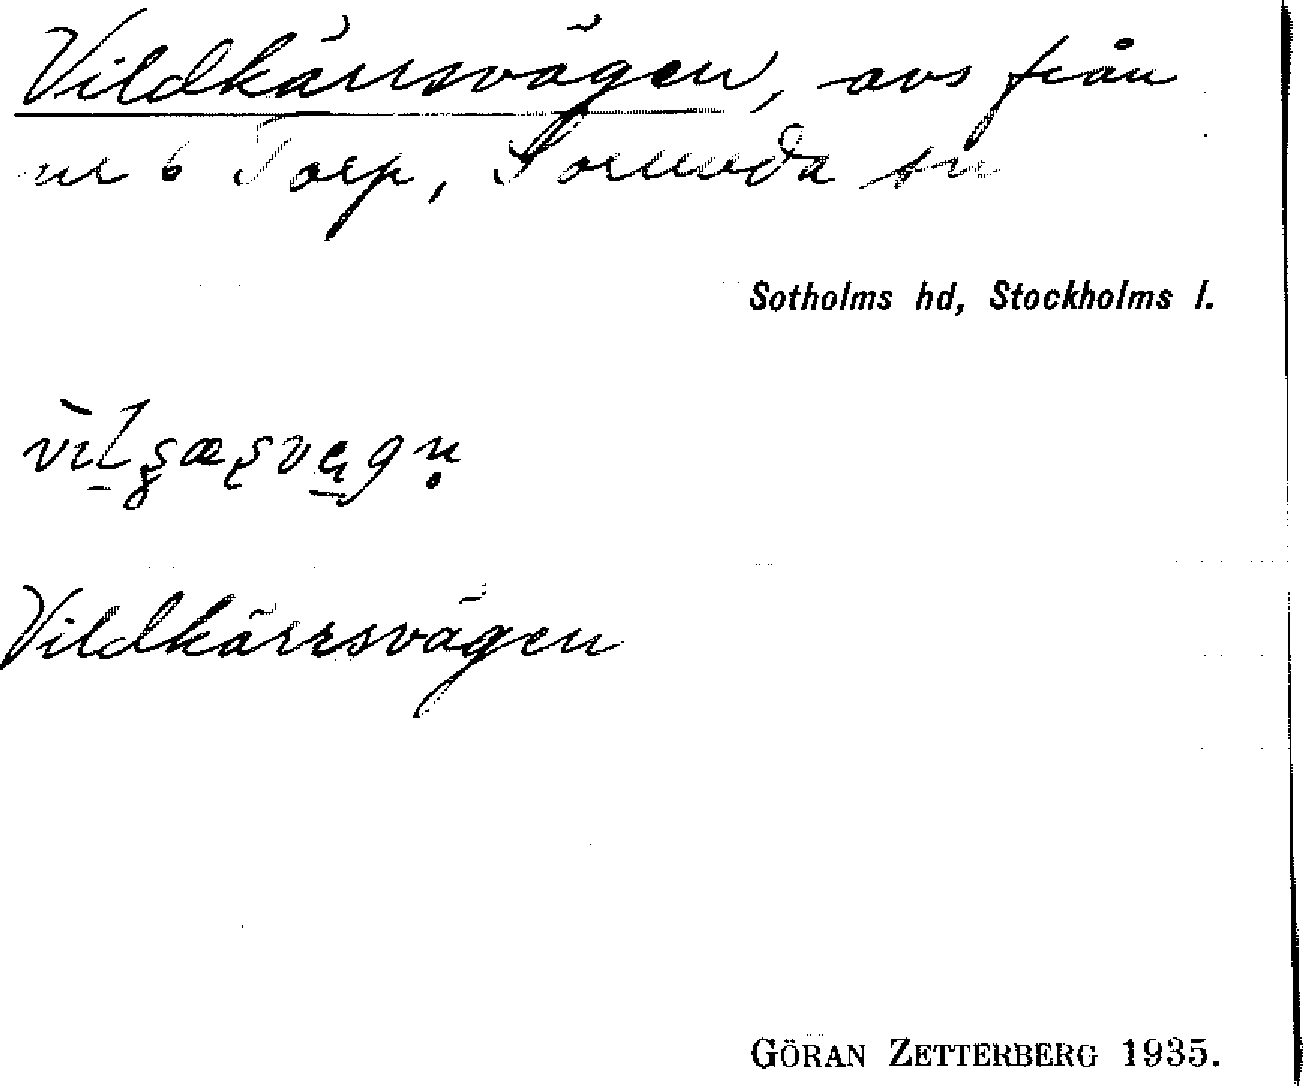 Vildkärrsvägen, avs från
nr 6 Torp, Sorunda sn
Sotholms hd, Stockholms l.
Vildkärrsvägen
GÖRAN ZETTERBERG 1935.